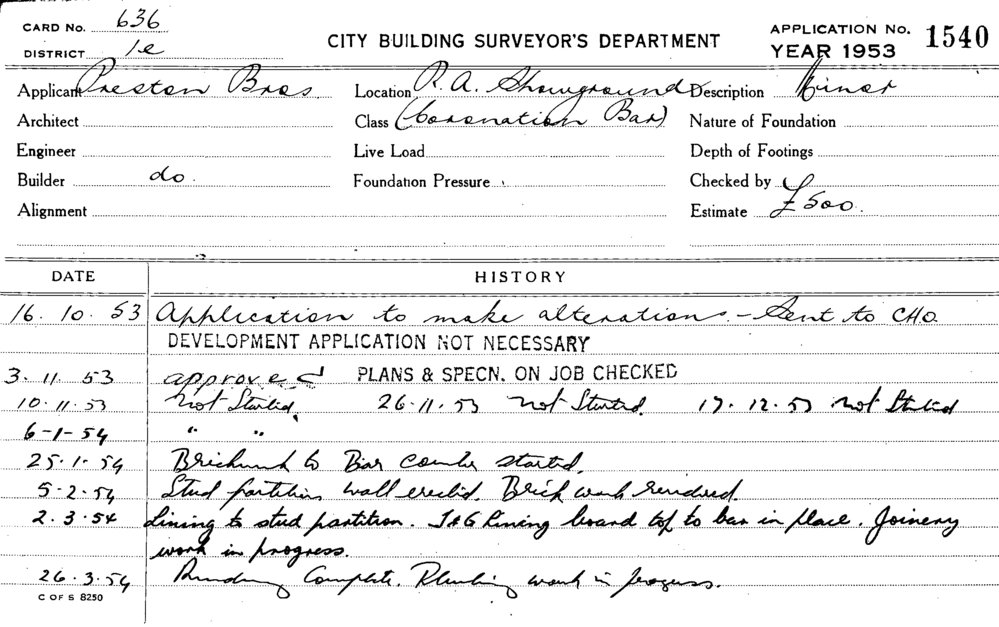 CARD No. 636
DISTRICT 1e
CITY BUILDING SURVEYOR'S DEPARTMENT
APPLICATION No. 1540
YEAR 1953
Applicant Preston Bros Location R. A. Showground Description Minor
Architect Class (Coronation Bar) Nature of Foundation
Engineer Live Load Depth of Footings
Builder do. Foundation Pressure Checked by
Alignment Estimate £500.
DATE HISTORY
16. 10. 53 Application to make alterations. - Sent to CHO.
DEVELOPMENT APPLICATION NOT NECESSARY
3. 11. 53 approved PLANS & SPECN. ON JOB CHECKED
10.11.53 Not Started. 26.11.53 Not Started. 17.12.53 Not Started
6-1-54 " "
25.1.54 Brickwork to Bar counter started.
5.2.54 Stud partition wall erected. Brick work rendered.
2.3.54 Lining to stud partition. T&G Lining board top to bar in place. Joinery
work in progress.
26.3.54 Rendering Complete. Plumbing work in progress.
C OF S 8250